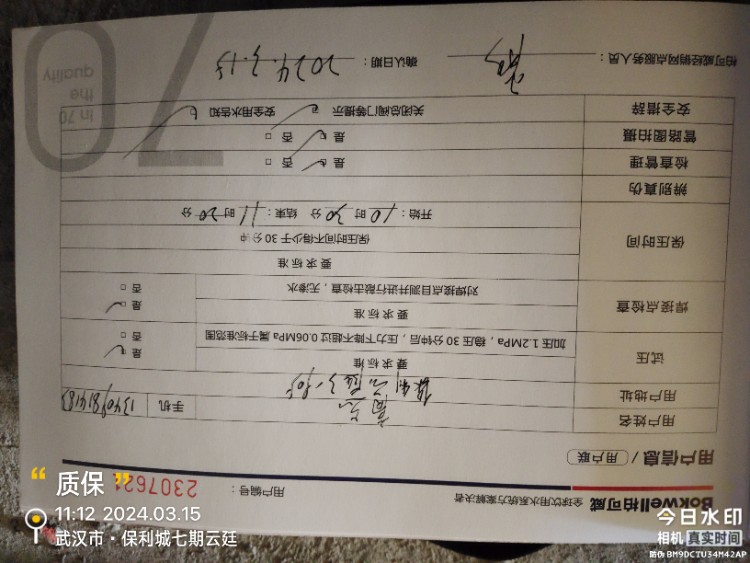 Bokwell柏可威 全球饮用水系统方案解决者 用户编号：2307621
用户信息 / 用户联
用户姓名 手机
用户地址
试压 要求标准
加压1.2MPa，稳压30分钟后，压力下降不超过0.06MPa属于标准范围
是 否
焊接点检查 要求标准
对焊接点目测并进行敲击检查，无渗水
是 否
保压时间 要求标准
保压时间不得少于30分钟
开始：10时30分 结束：11时20分
辨别真伪
检查管理 是 否
管路图拍摄 是 否
安全措辞 关闭总阀门等提示 安全用水告知
柏可威经销网点服务人员： 确认日期：2024.3.15
In 70
the
quality
70
质保
11:12 2024.03.15
武汉市·保利城七期云廷
今日水印
相机 真实时间
防伪 BM9DCTU34M42AP